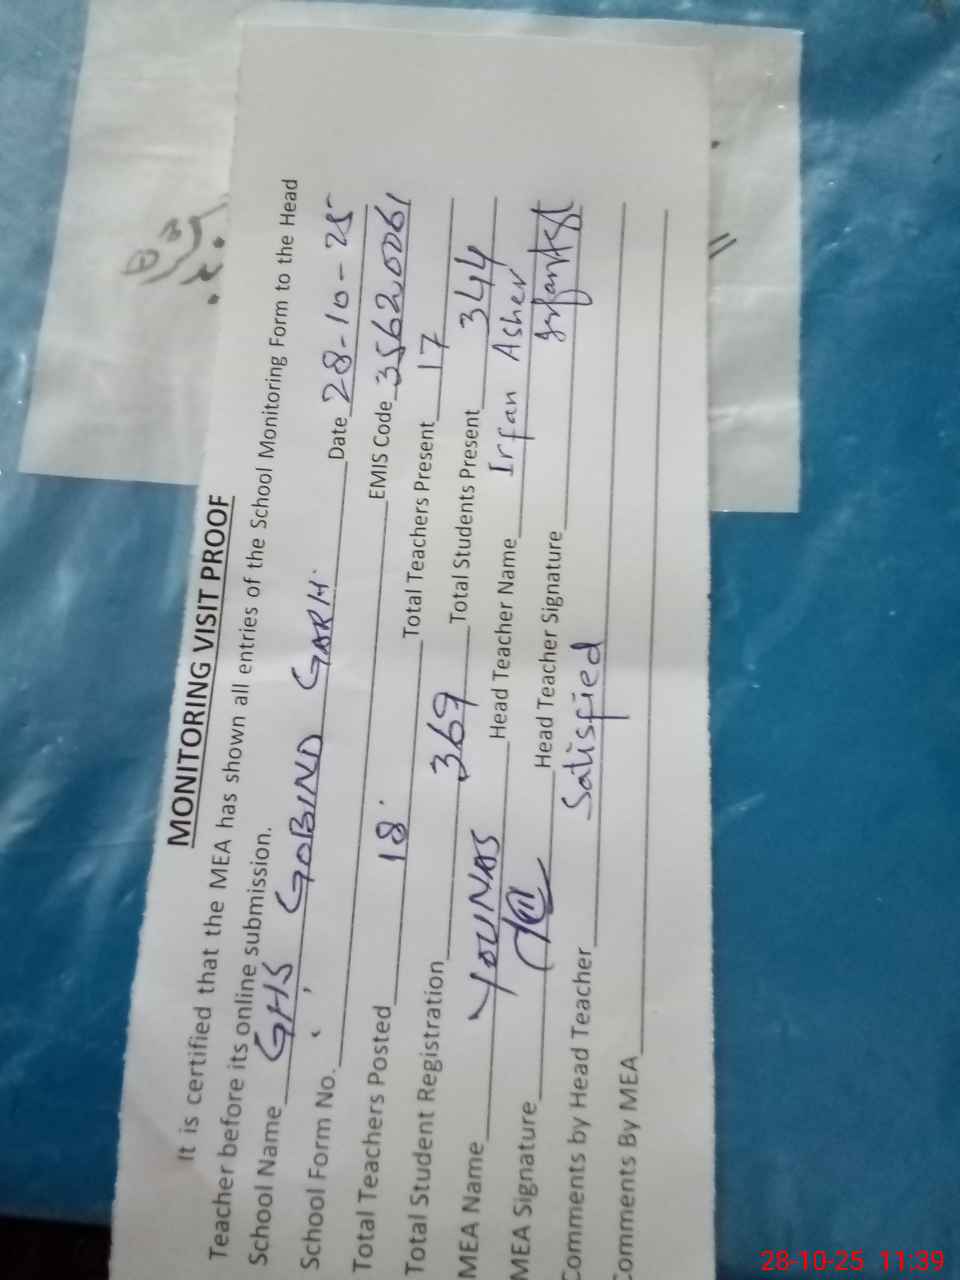 MONITORING VISIT PROOF
It is certified that the MEA has shown all entries of the School Monitoring Form to the Head
Teacher before its online submission.
School Name GHS GOBIND GARH. Date 28-10-25
School Form No. EMIS Code 35620061
Total Teachers Posted 18. Total Teachers Present 17
Total Student Registration 369 Total Students Present 344
MEA Name YOUNAS Head Teacher Name Irfan Asher
MEA Signature Head Teacher Signature
Comments by Head Teacher Satisfied
Comments By MEA
28-10-25 11:39